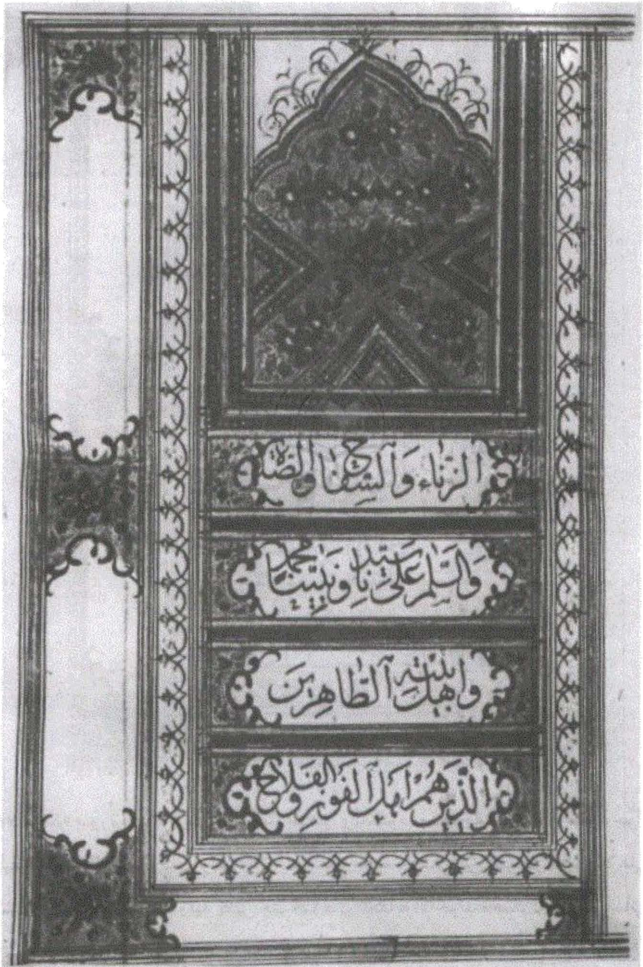 الزناء والسفاح والصلاة
والسلم على سيدنا ونبينا محمد
واهل بيته الطاهرين
الذين هم اهل الفوز والفلاح